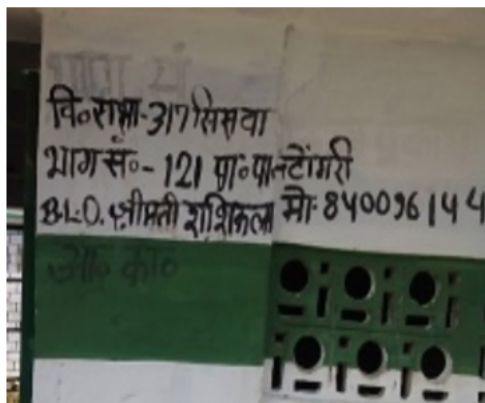 वि०सभा-317 सिसवा
भाग सं०-121 प्रा०पा० टेंगरी
B.L.O. श्रीमती शशिकला मो: 840096144
आ० का०